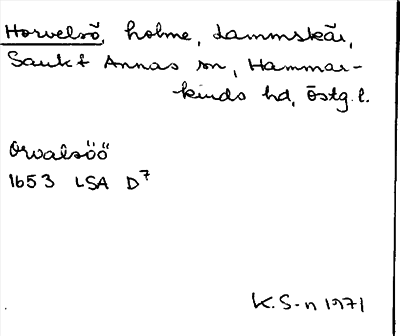 Horvelsö, holme, Lammskär,
Sankt Annas sn, Hammar-
kinds hd, Östg. l.
Orvalsöö
1653 LSA D7
K. S-n 1971